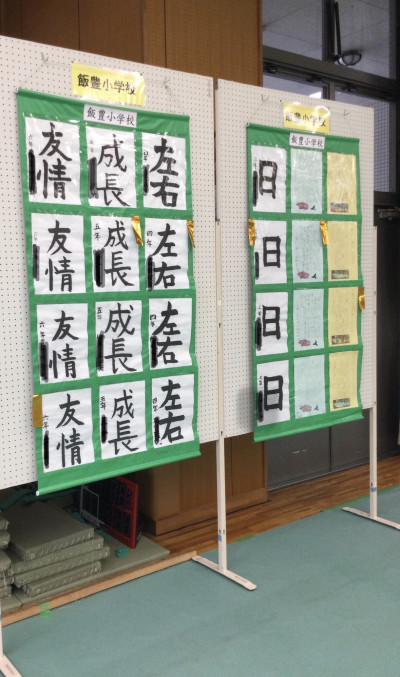 飯豊小学校
飯豊小学校
友情
成長
左右
友情
五年
成長
四年
左右
六年
友情
五年
成長
四年
左右
六年
友情
五年
成長
四年
左右
飯豊小学校
飯豊小学校
日
日
日
日